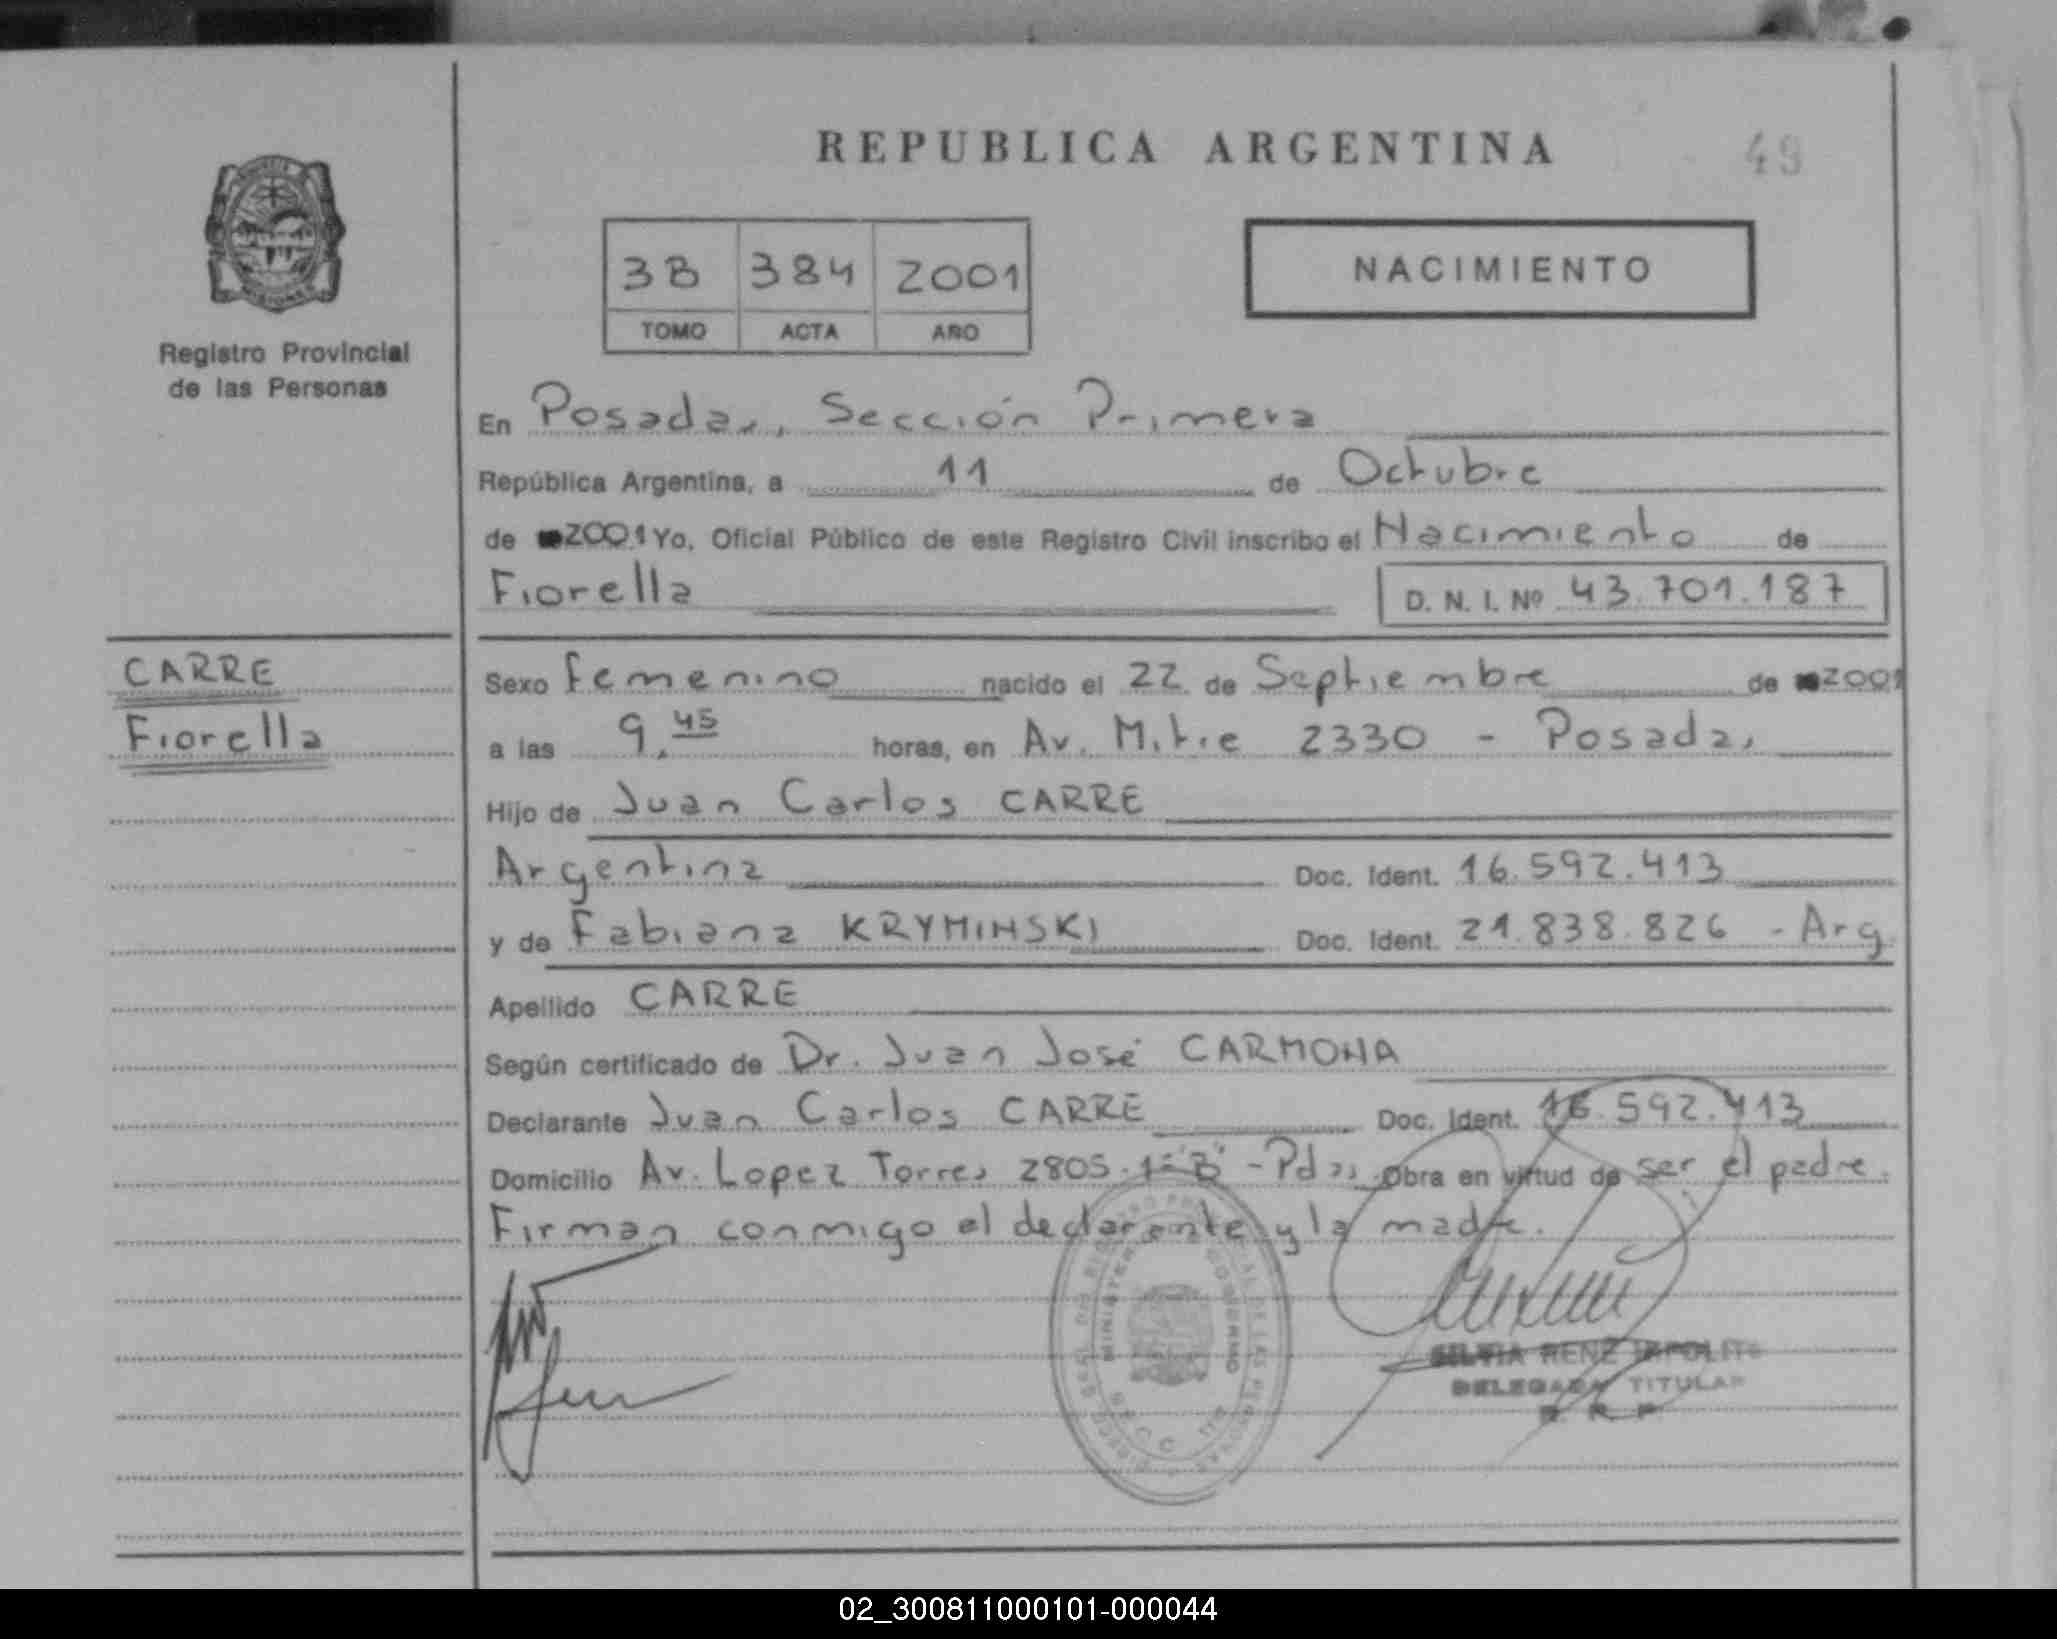 REPUBLICA ARGENTINA
49
Registro Provincial
de las Personas
3B 384 2001
TOMO ACTA AÑO
NACIMIENTO
En Posadas, Sección Primera
República Argentina, a 11 de Octubre
de 2001 Yo, Oficial Público de este Registro Civil inscribo el Nacimiento de
Fiorella D. N. I. Nº 43.701.187
CARRE
Fiorella
Sexo femenino nacido el 22 de Septiembre de 2001
a las 9,45 horas, en Av. Mitre 2330 - Posadas
Hijo de Juan Carlos CARRE
Argentina Doc. Ident. 16.592.413
y de Fabiana KRYMINSKI Doc. Ident. 21.838.826 - Arg.
Apellido CARRE
Según certificado de Dr. Juan José CARMONA
Declarante Juan Carlos CARRE Doc. Ident. 16.592.413
Domicilio Av. Lopez Torres 2805-1º"B" - Pdas, Obra en virtud de ser el padre.
Firman conmigo el declarante y la madre.
MINISTERIO GOBIERNO
SILVIA RENE HIPOLITO
DELEGADA TITULAR
R. R. P.
02_300811000101-000044